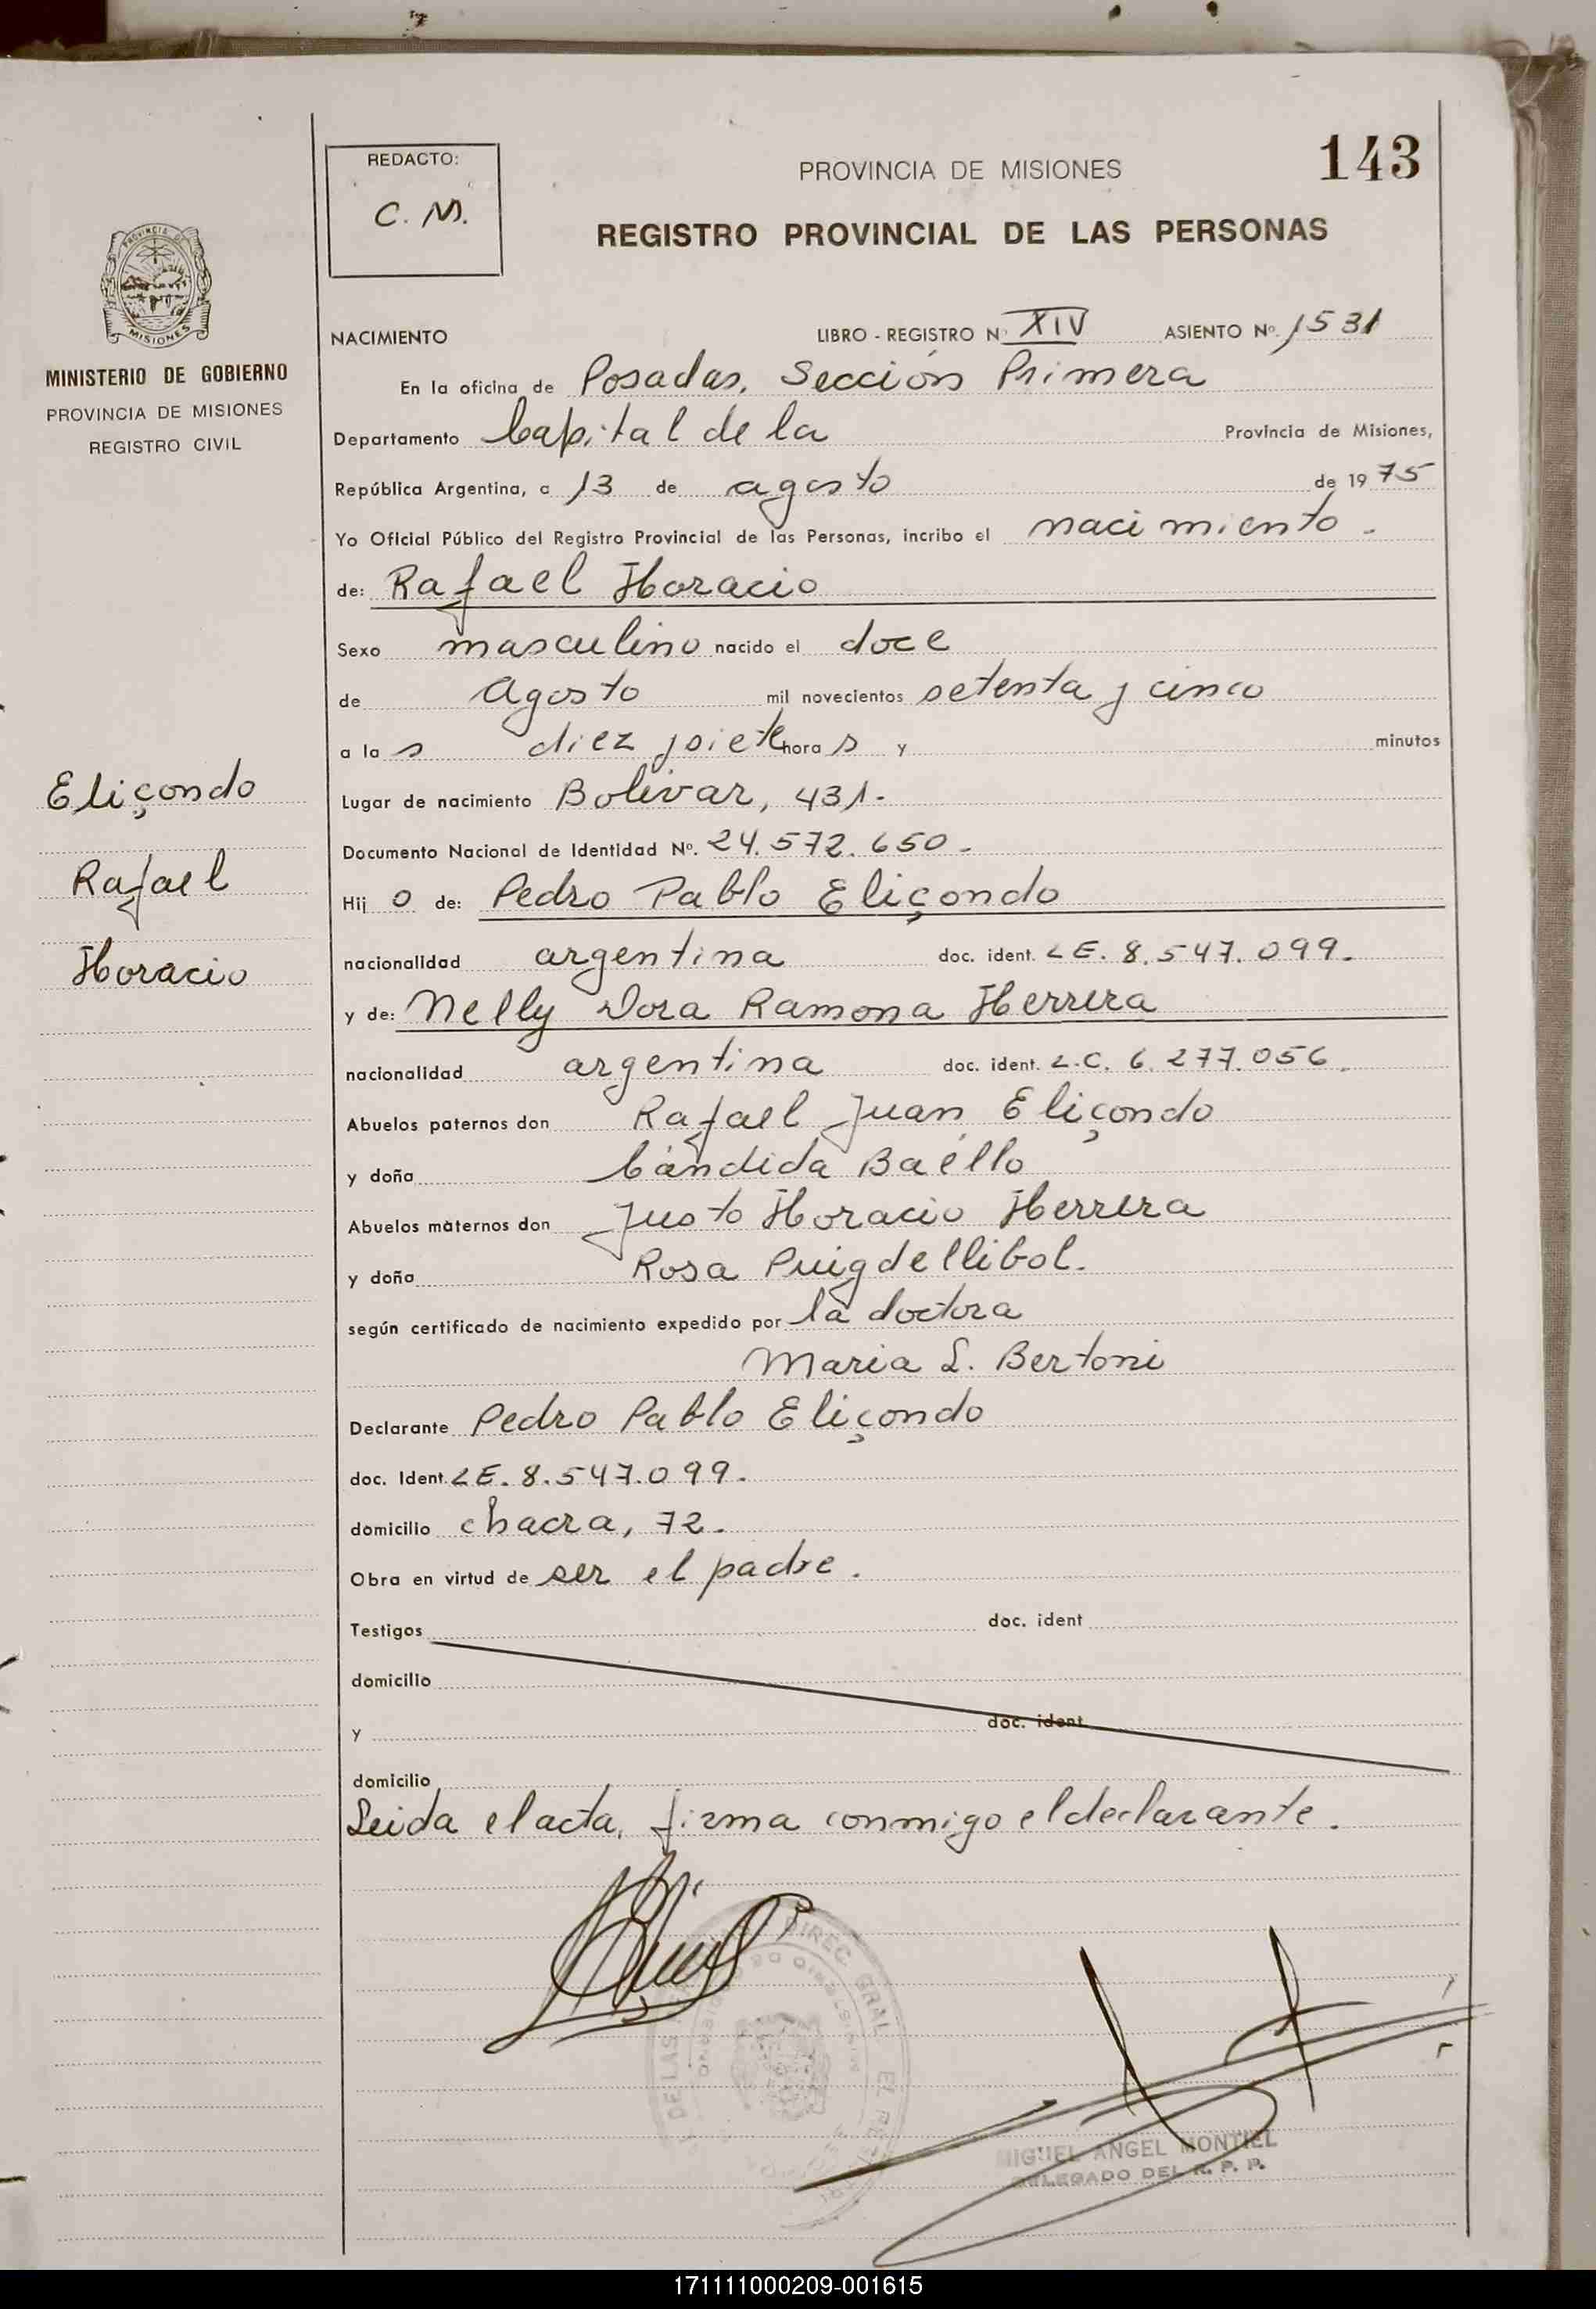 143
REDACTO:
C. M.
PROVINCIA DE MISIONES
REGISTRO PROVINCIAL DE LAS PERSONAS
PROVINCIA DE
MISIONES
MINISTERIO DE GOBIERNO
PROVINCIA DE MISIONES
REGISTRO CIVIL
Eliçondo
Rafael
Horacio
NACIMIENTO LIBRO - REGISTRO N° XIV ASIENTO Nº. 1531
En la oficina de Posadas, Sección Primera
Departamento Capital de la Provincia de Misiones,
República Argentina, a 13 de agosto de 1975
Yo Oficial Público del Registro Provincial de las Personas, incribo el nacimiento.
de: Rafael Horacio
Sexo masculino nacido el doce
de Agosto mil novecientos setenta y cinco
a las diez y siete horas y minutos
Lugar de nacimiento Bolivar, 431.
Documento Nacional de Identidad Nº. 24.572.650.
Hijo de: Pedro Pablo Eliçondo
nacionalidad argentina doc. ident. LE. 8.547.099.
y de: Nelly Dora Ramona Herrera
nacionalidad argentina doc. ident. L.C. 6.277.056.
Abuelos paternos don Rafael Juan Eliçondo
y doña Cándida Baéllo
Abuelos maternos don Justo Horacio Herrera
y doña Rosa Puigdellibol.
según certificado de nacimiento expedido por la doctora
Maria L. Bertoni
Declarante Pedro Pablo Eliçondo
doc. Ident. LE. 8.547.099.
domicilio chacra, 72.
Obra en virtud de ser el padre.
Testigos doc. ident
domicilio
y doc. ident
domicilio
Leida el acta, firma conmigo el declarante.
DIREC. GRAL
DE LAS
MIGUEL ANGEL MONTIEL
DELEGADO DEL R. P. P.
171111000209-001615